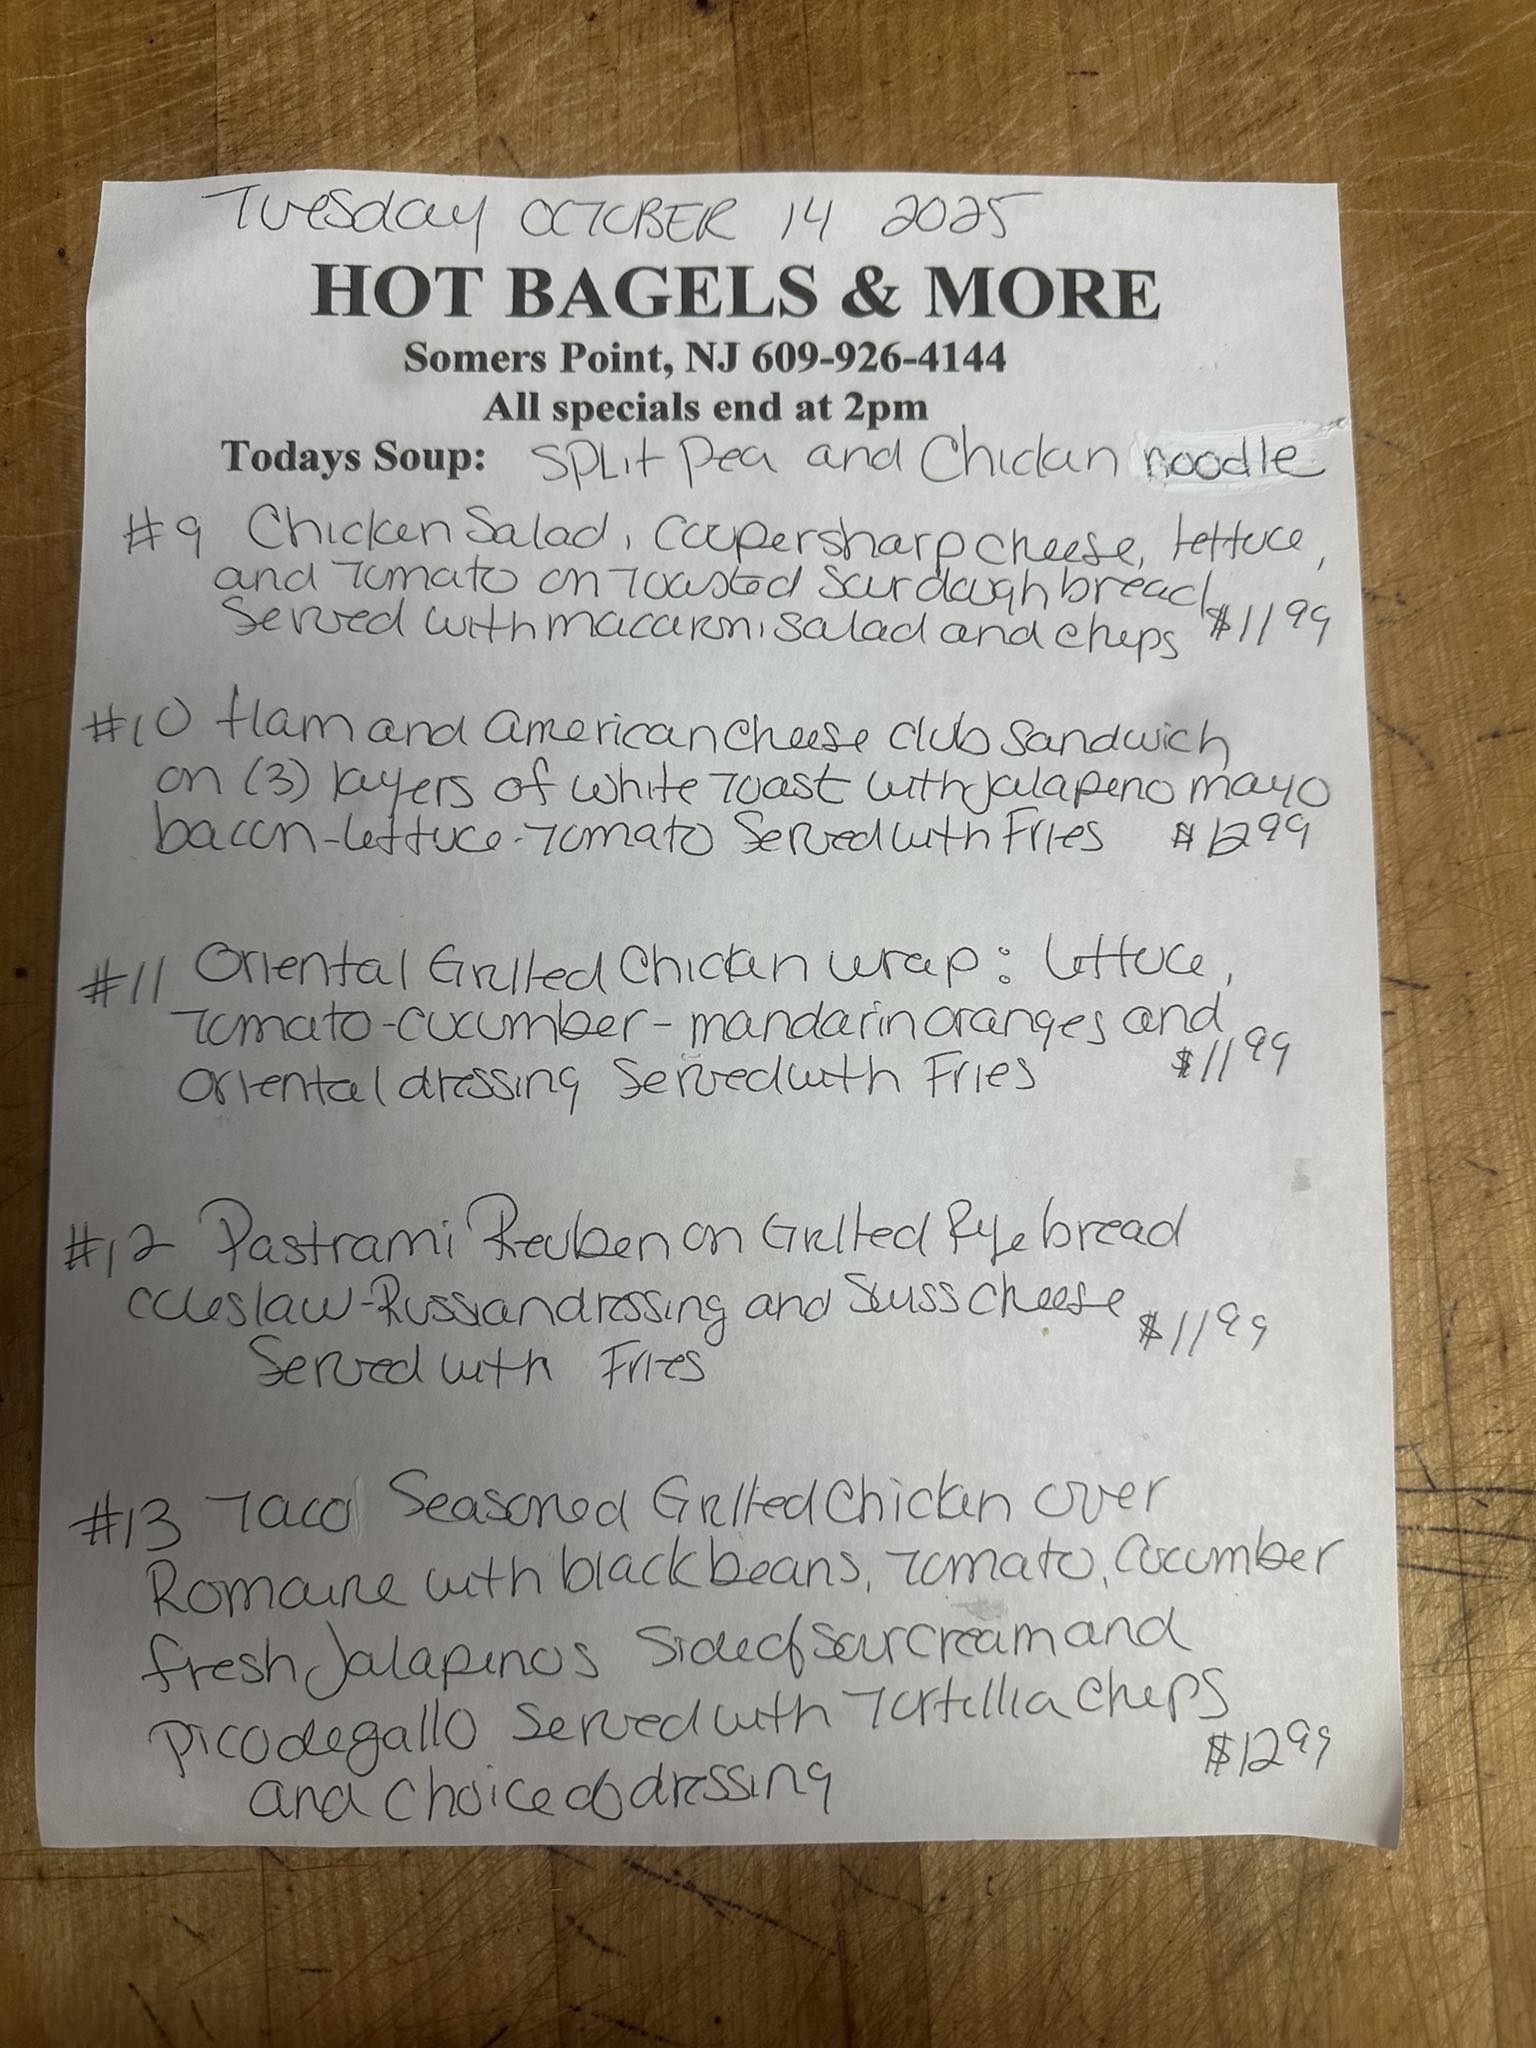 Tuesday OCTOBER 14 2025
HOT BAGELS & MORE
Somers Point, NJ 609-926-4144
All specials end at 2pm
Todays Soup: Split Pea and Chicken noodle
#9 Chicken Salad, Coopersharp cheese, lettuce,
and Tomato on Toasted Sourdough bread
Served with macaroni salad and chips $11.99
#10 Ham and American cheese club Sandwich
on (3) layers of white Toast with Jalapeno mayo
bacon-lettuce-Tomato Served with Fries $12.99
#11 Oriental Grilled Chicken wrap: lettuce,
Tomato-cucumber-mandarin oranges and
Oriental dressing Served with Fries $11.99
#12 Pastrami Reuben on Grilled Rye bread
coleslaw-Russian dressing and Swiss cheese $11.99
Served with Fries
#13 Taco Seasoned Grilled Chicken over
Romaine with black beans, Tomato, Cucumber
fresh Jalapenos Side of sour cream and
pico de gallo Served with Tortillia Chips
and choice of dressing $12.99